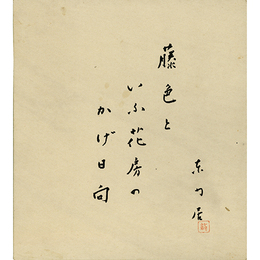 藤色と
いふ花房の
かげ日向
東門居